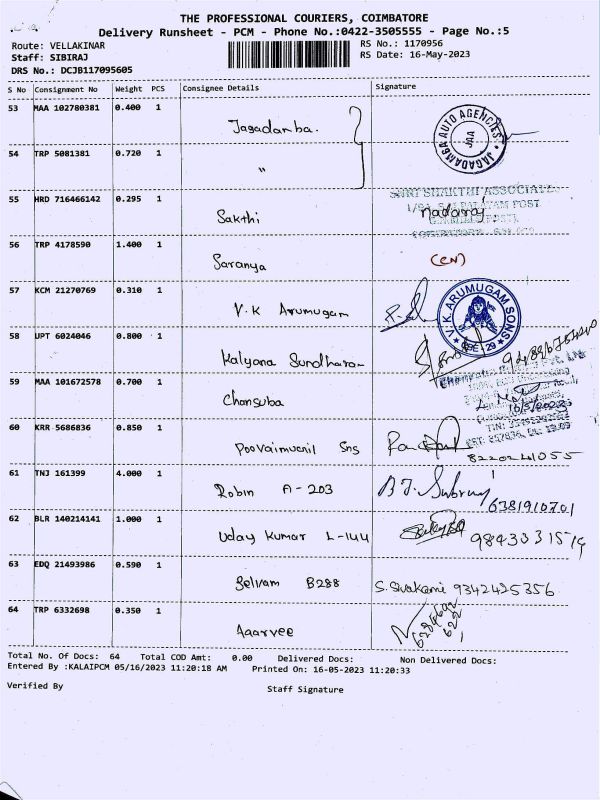 THE PROFESSIONAL COURIERS, COIMBATORE
Delivery Runsheet - PCM - Phone No.:0422-3505555 - Page No.:5
Route: VELLAKINAR
RS No.: 1170956
Staff: SIBIRAJ
RS Date: 16-May-2023
DRS No.: DCJB117095605
S No Consignment No Weight PCS Consignee Details Signature
53 MAA 102780381 0.400 1 Jagadamba. JAGADAMBA AUTO AGENCIES JAA
54 TRP 5081381 0.720 1 "
55 HRD 716466142 0.295 1 Sakthi SHRI SHAKTHI ASSOCIATE
Nadaraj
56 TRP 4178590 1.400 1 Saranya (CN)
57 KCM 21270769 0.310 1 V.K Arumugam V.K. ARUMUGAM SONS
58 UPT 6024046 0.800 1 Kalyana
59 MAA 101672578 0.700 1 Chansuba
60 KRR 5686836 0.850 1 Sns
8220241055
61 TNJ 161399 4.000 1 Robin A-203
6381910701
62 BLR 140214141 1.000 1 Uday Kumar L-144 9843331579
63 EDQ 21493986 0.590 1 Selvam B288 S. Sivakami 9342425356
64 TRP 6332698 0.350 1 Aaarvee
Total No. Of Docs: 64 Total COD Amt: 0.00 Delivered Docs: Non Delivered Docs:
Entered By :KALAIPCM 05/16/2023 11:20:18 AM Printed On: 16-05-2023 11:20:33
Verified By Staff Signature